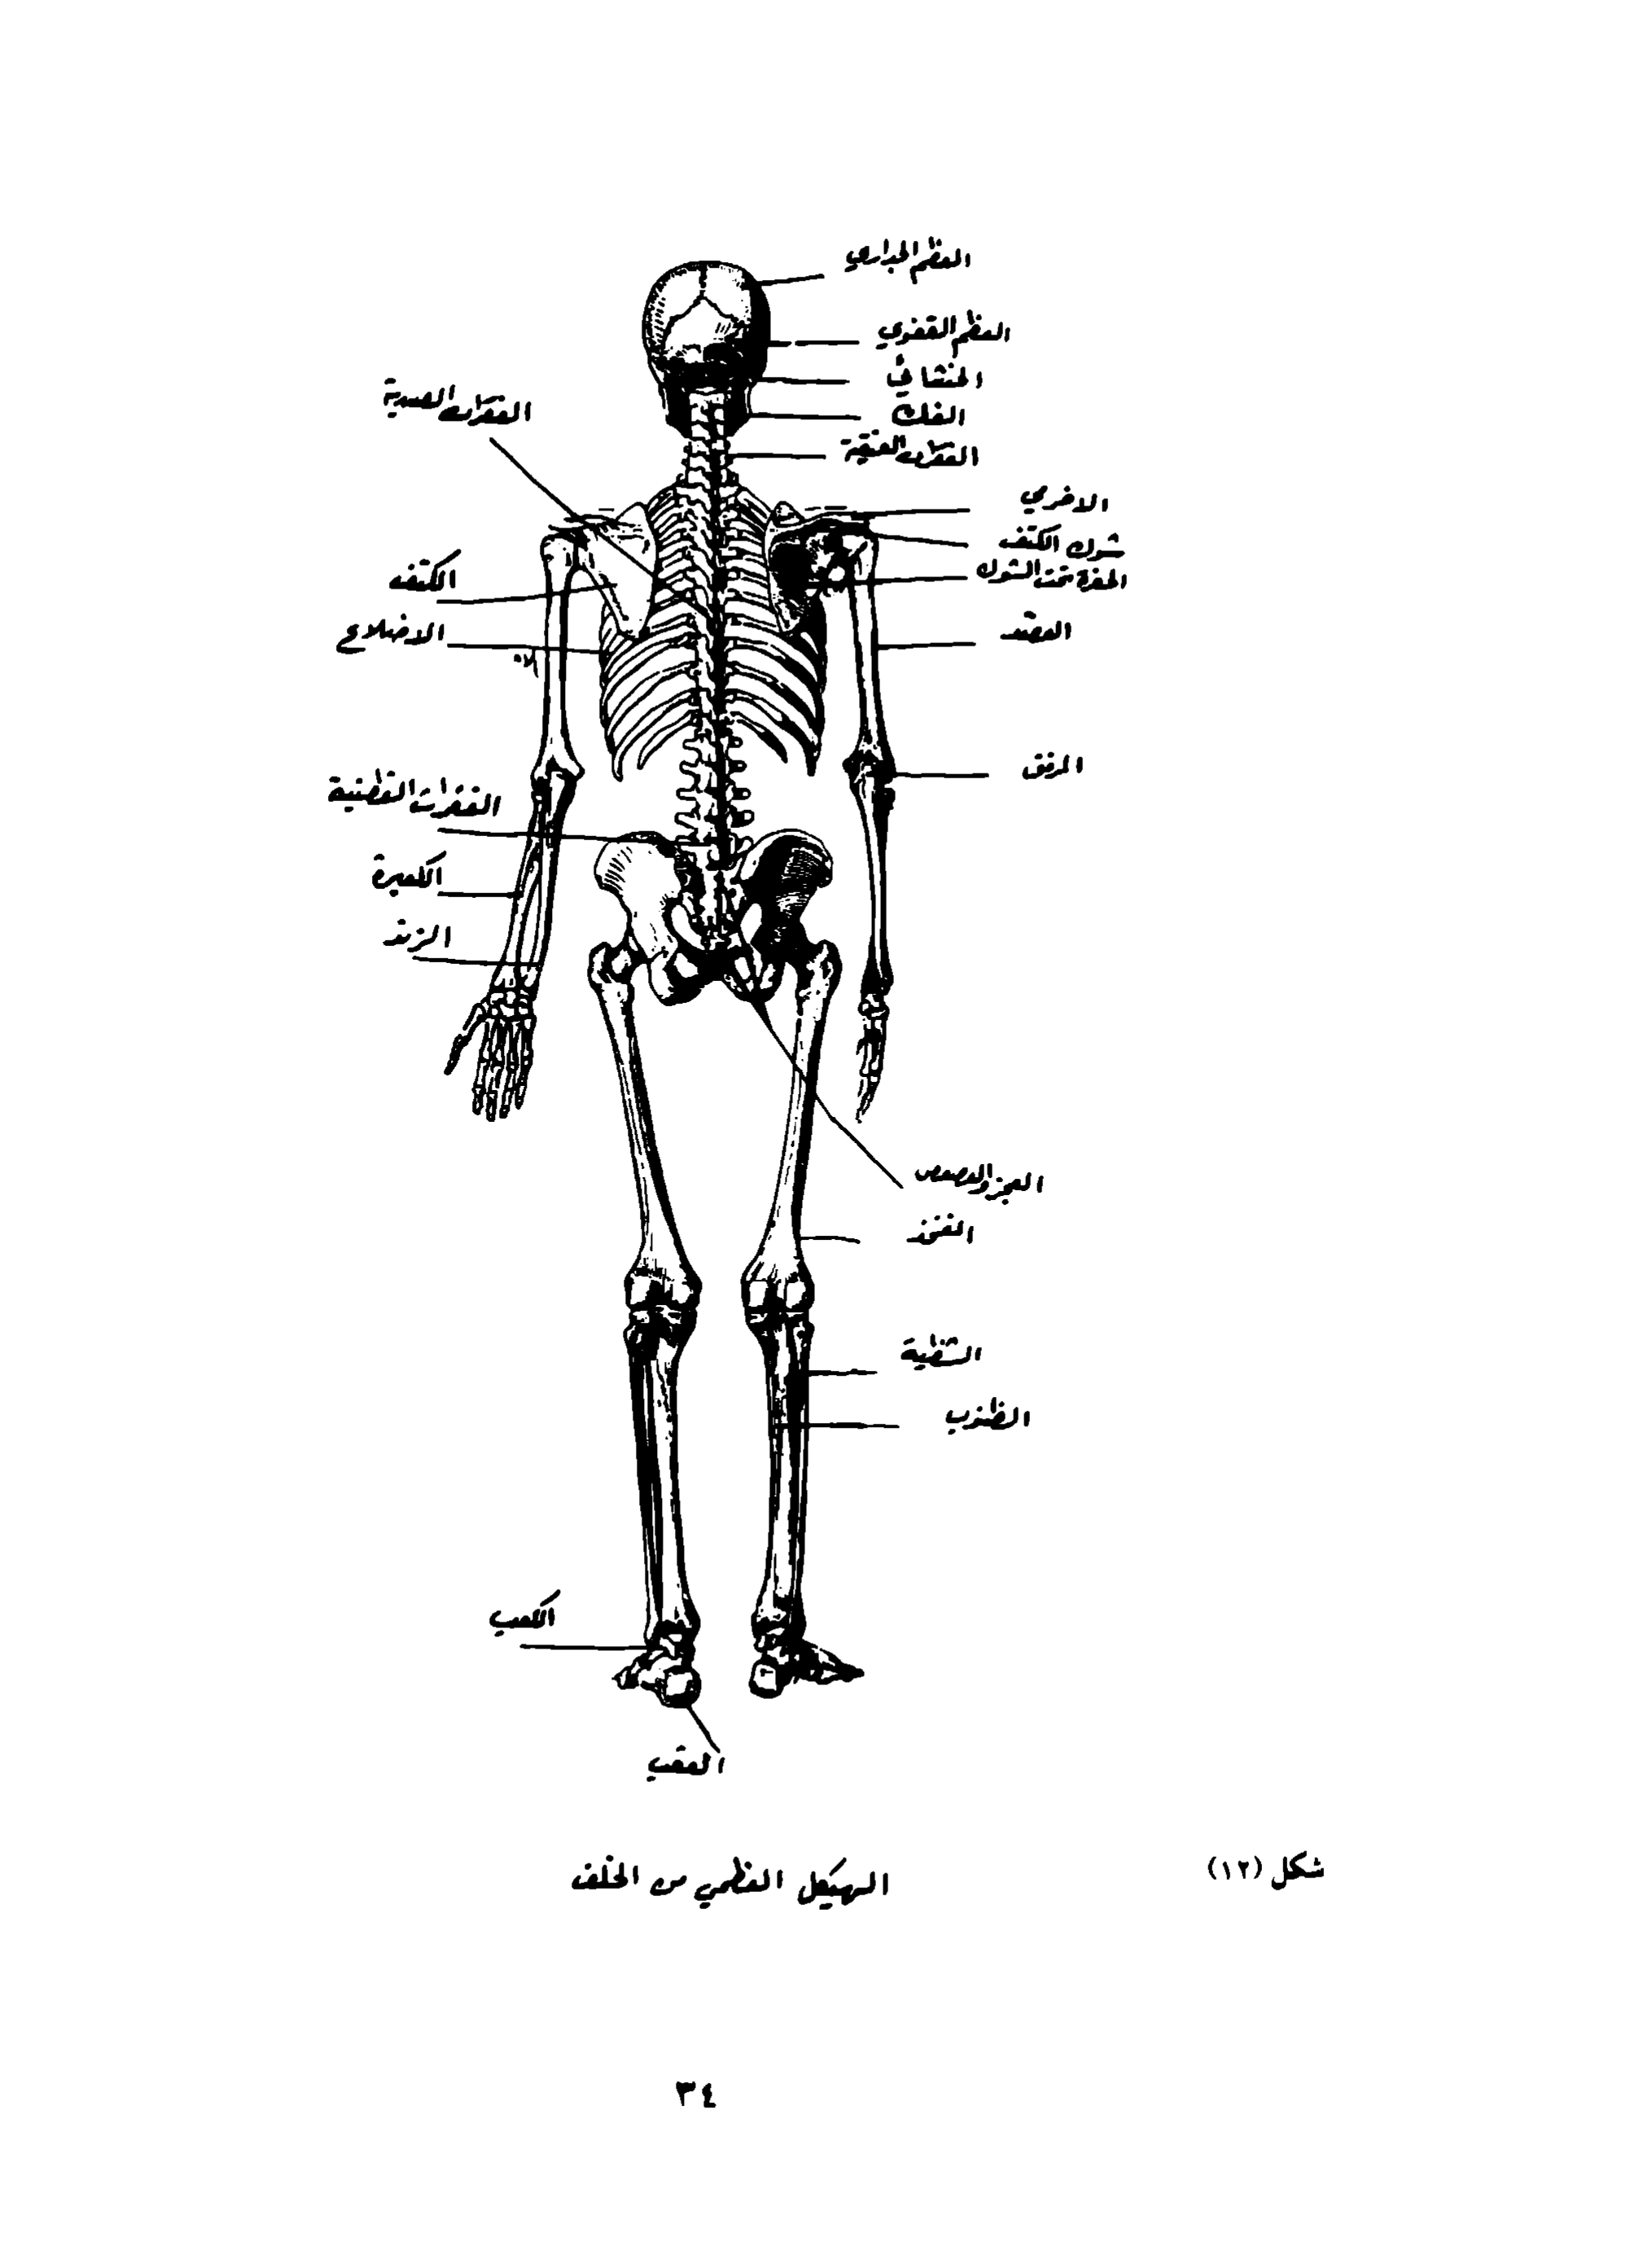 العظم الجداري
العظم القفوي
الخشائي
الفك
الفقرات العنقية
الفقرات الصدرية
الاخرمي
شوك الكتف
الحفرة تحت الشوك
الكتف
العضد
الاضلاع
المرفق
الفقرات القطنية
الكعبرة
الزند
العجز والعصعص
الفخذ
الشظية
الظنوب
الكعب
العقب
شكل (١٢)
الهيكل العظمي من الخلف
٣٤